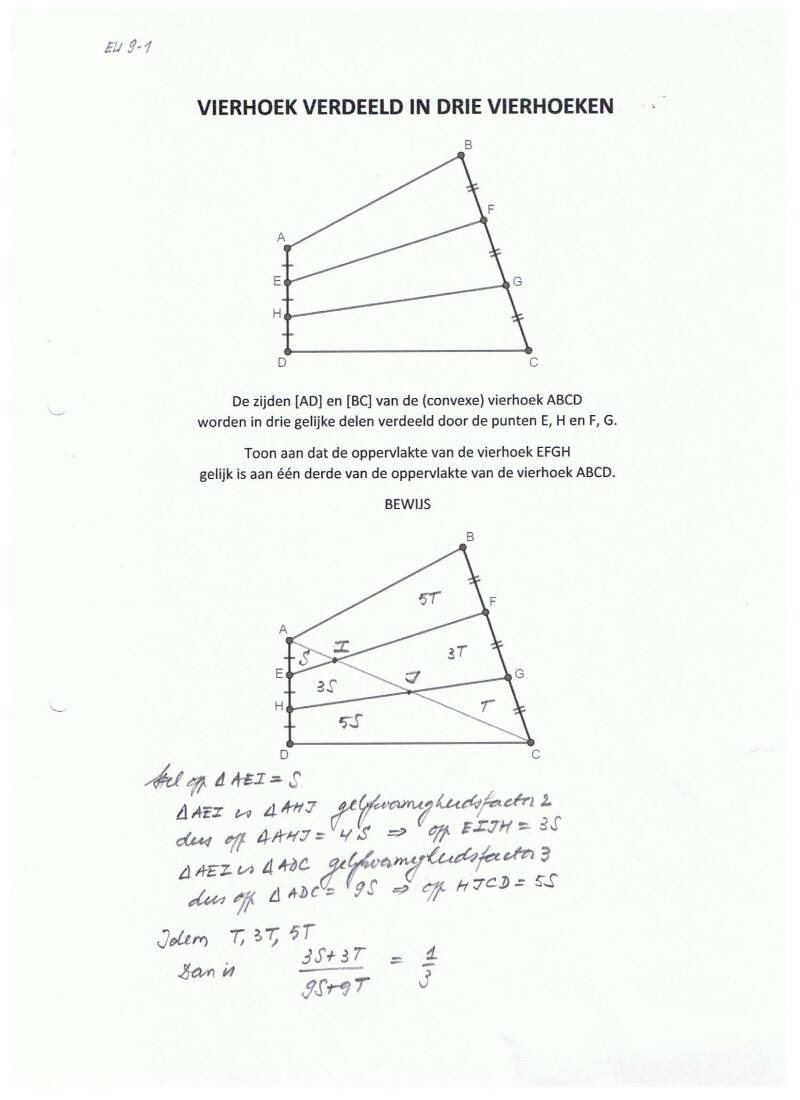 EH 9-1
VIERHOEK VERDEELD IN DRIE VIERHOEKEN
B
F
A
E
G
H
D
C
De zijden [AD] en [BC] van de (convexe) vierhoek ABCD
worden in drie gelijke delen verdeeld door de punten E, H en F, G.
Toon aan dat de oppervlakte van de vierhoek EFGH
gelijk is aan één derde van de oppervlakte van de vierhoek ABCD.
BEWIJS
B
5T
F
A
I
S
3T
E
J
G
3S
H
T
5S
D
C
Stel op Δ AEI = S
Δ AEI ∾ Δ AHJ gelijkvormigheidsfactor 2
dus opp Δ AHJ = 4S ⇒ opp EIJH = 3S
Δ AEI ∾ Δ ADC gelijkvormigheidsfactor 3
dus opp Δ ADC = 9S ⇒ opp HJCD = 5S
Idem T, 3T, 5T
Dan is 3S+3T / 9S+9T = 1/3